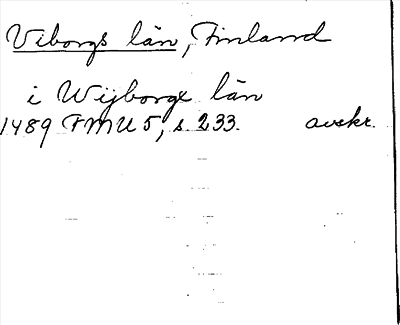 Viborgs län, Finland
i Wijborgx län
1489 FMU 5, s. 233. avskr.